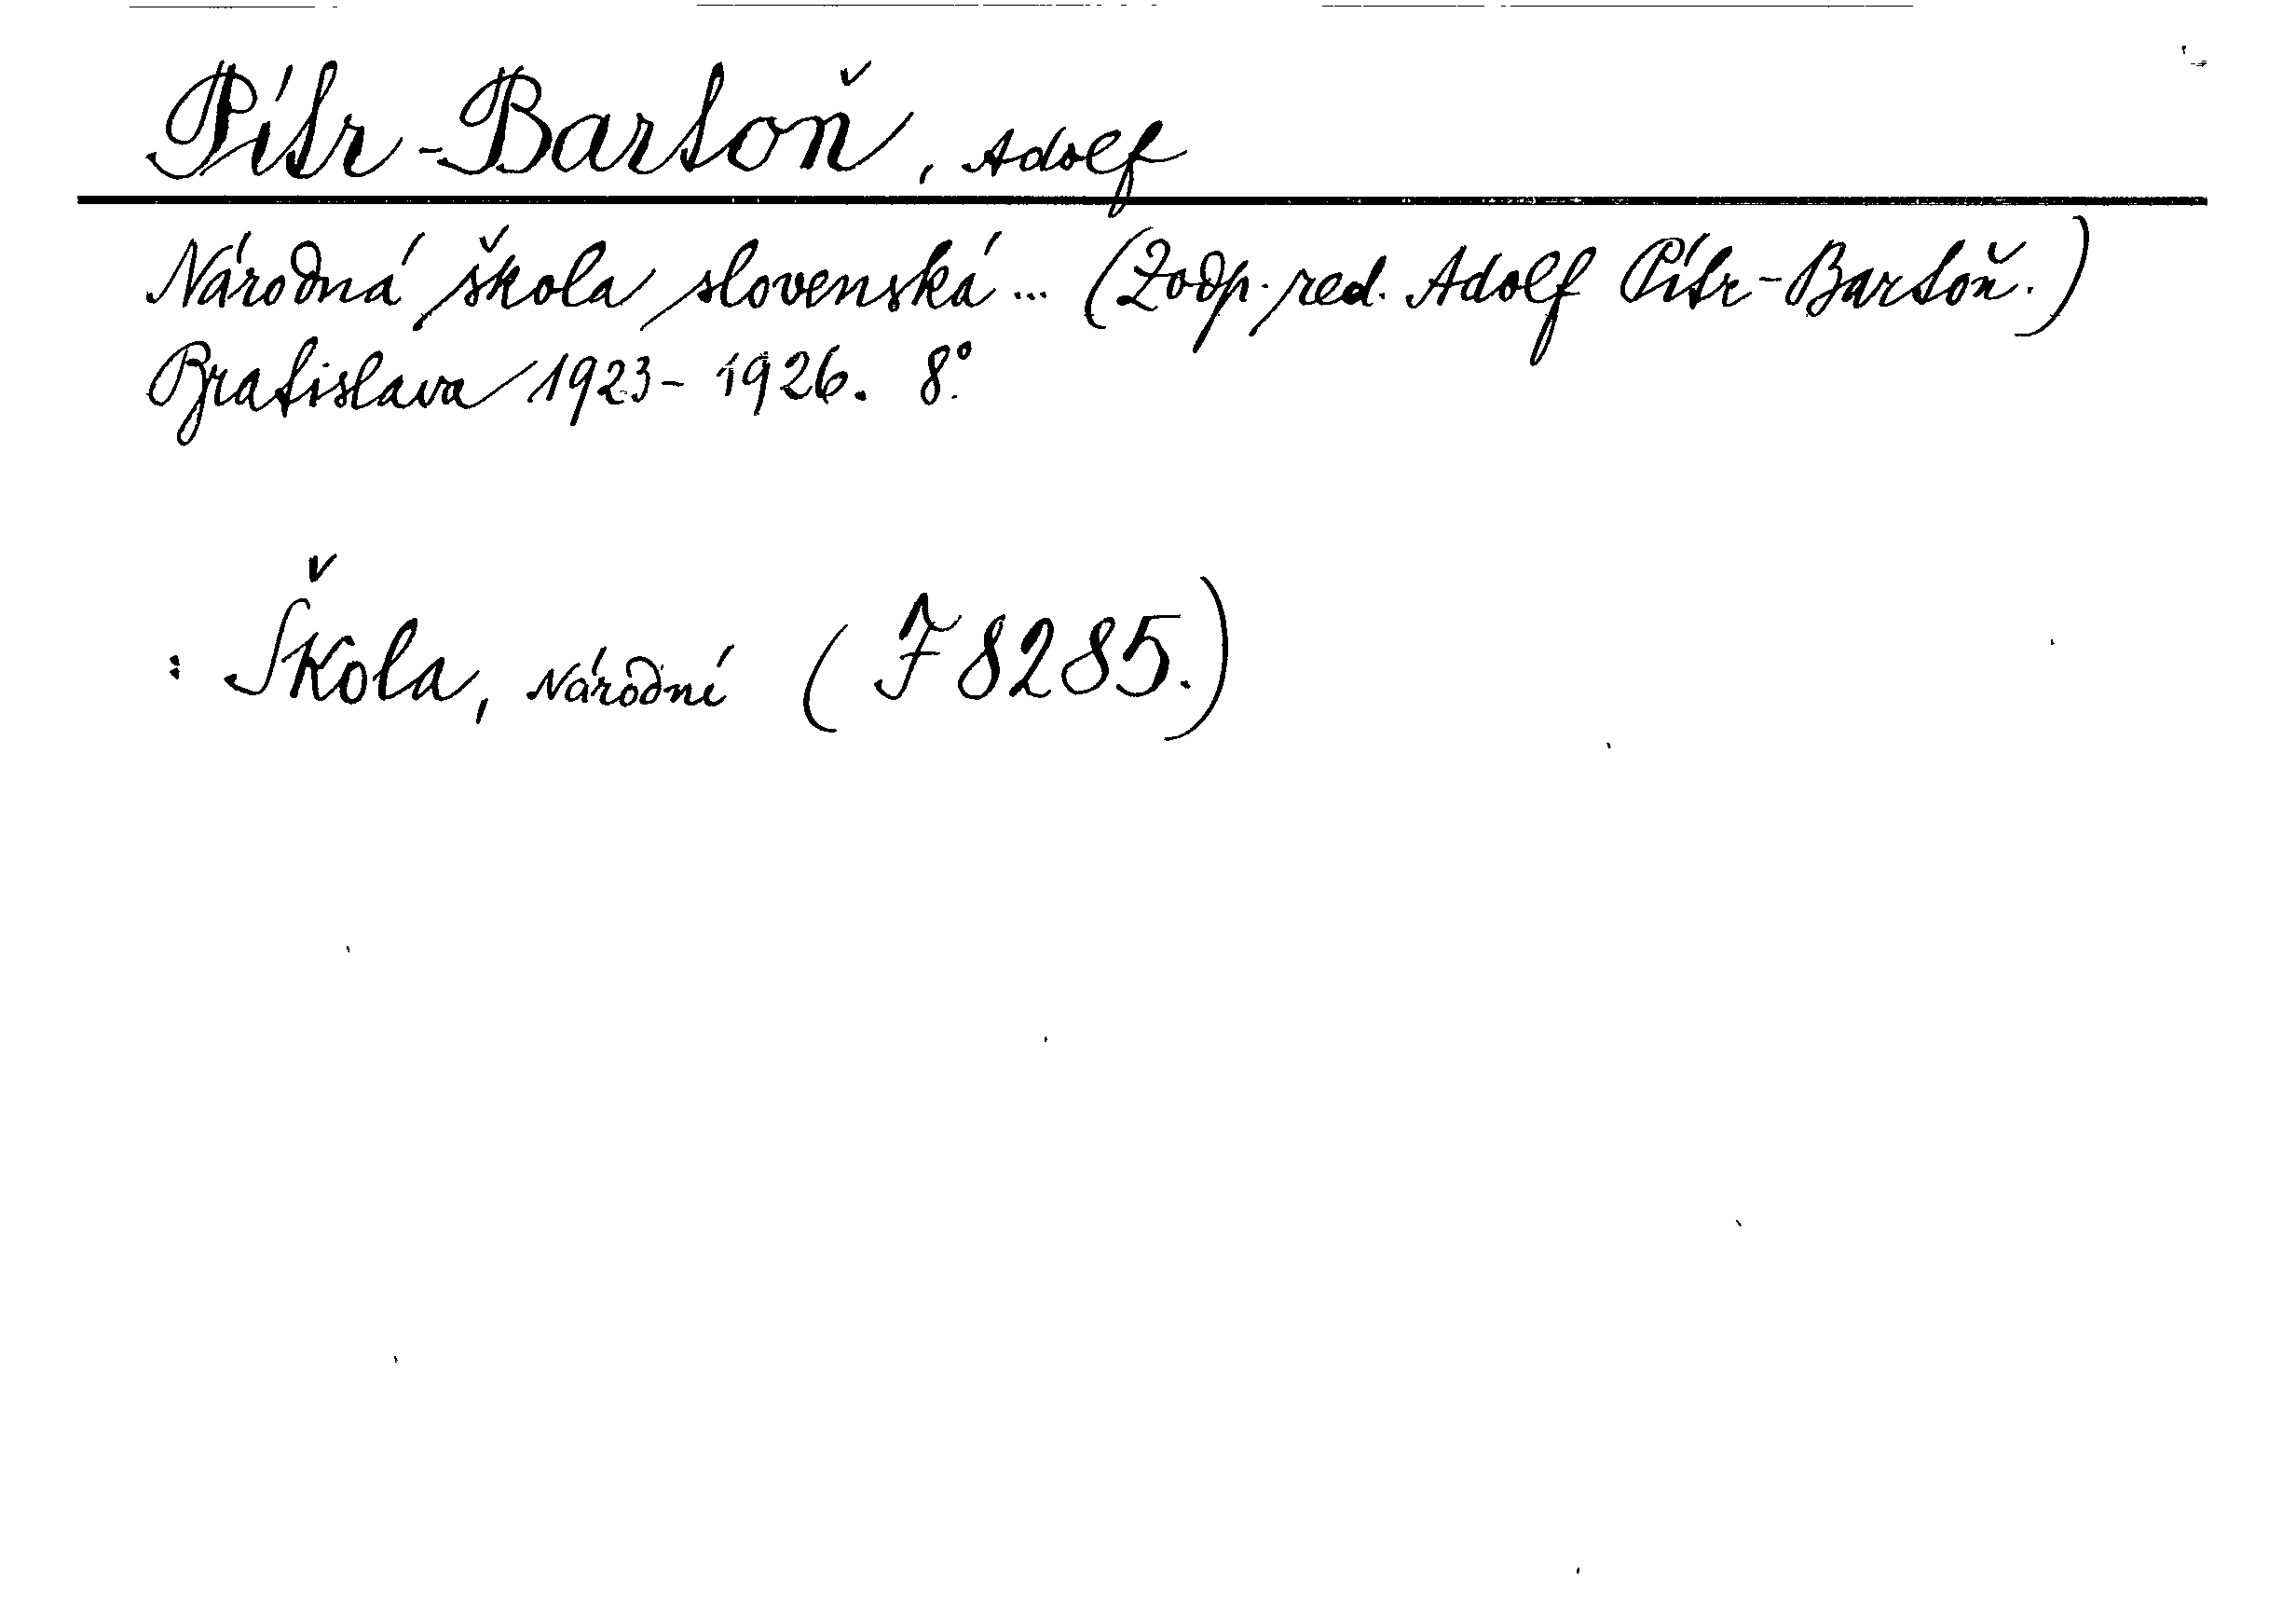 Pítr-Bartoň, Adolf
Národná škola slovenská... (Zodp. red. Adolf Pítr-Bartoň.)
Bratislava 1923-1926. 8°.
: Škola, Národní (F 8285.)